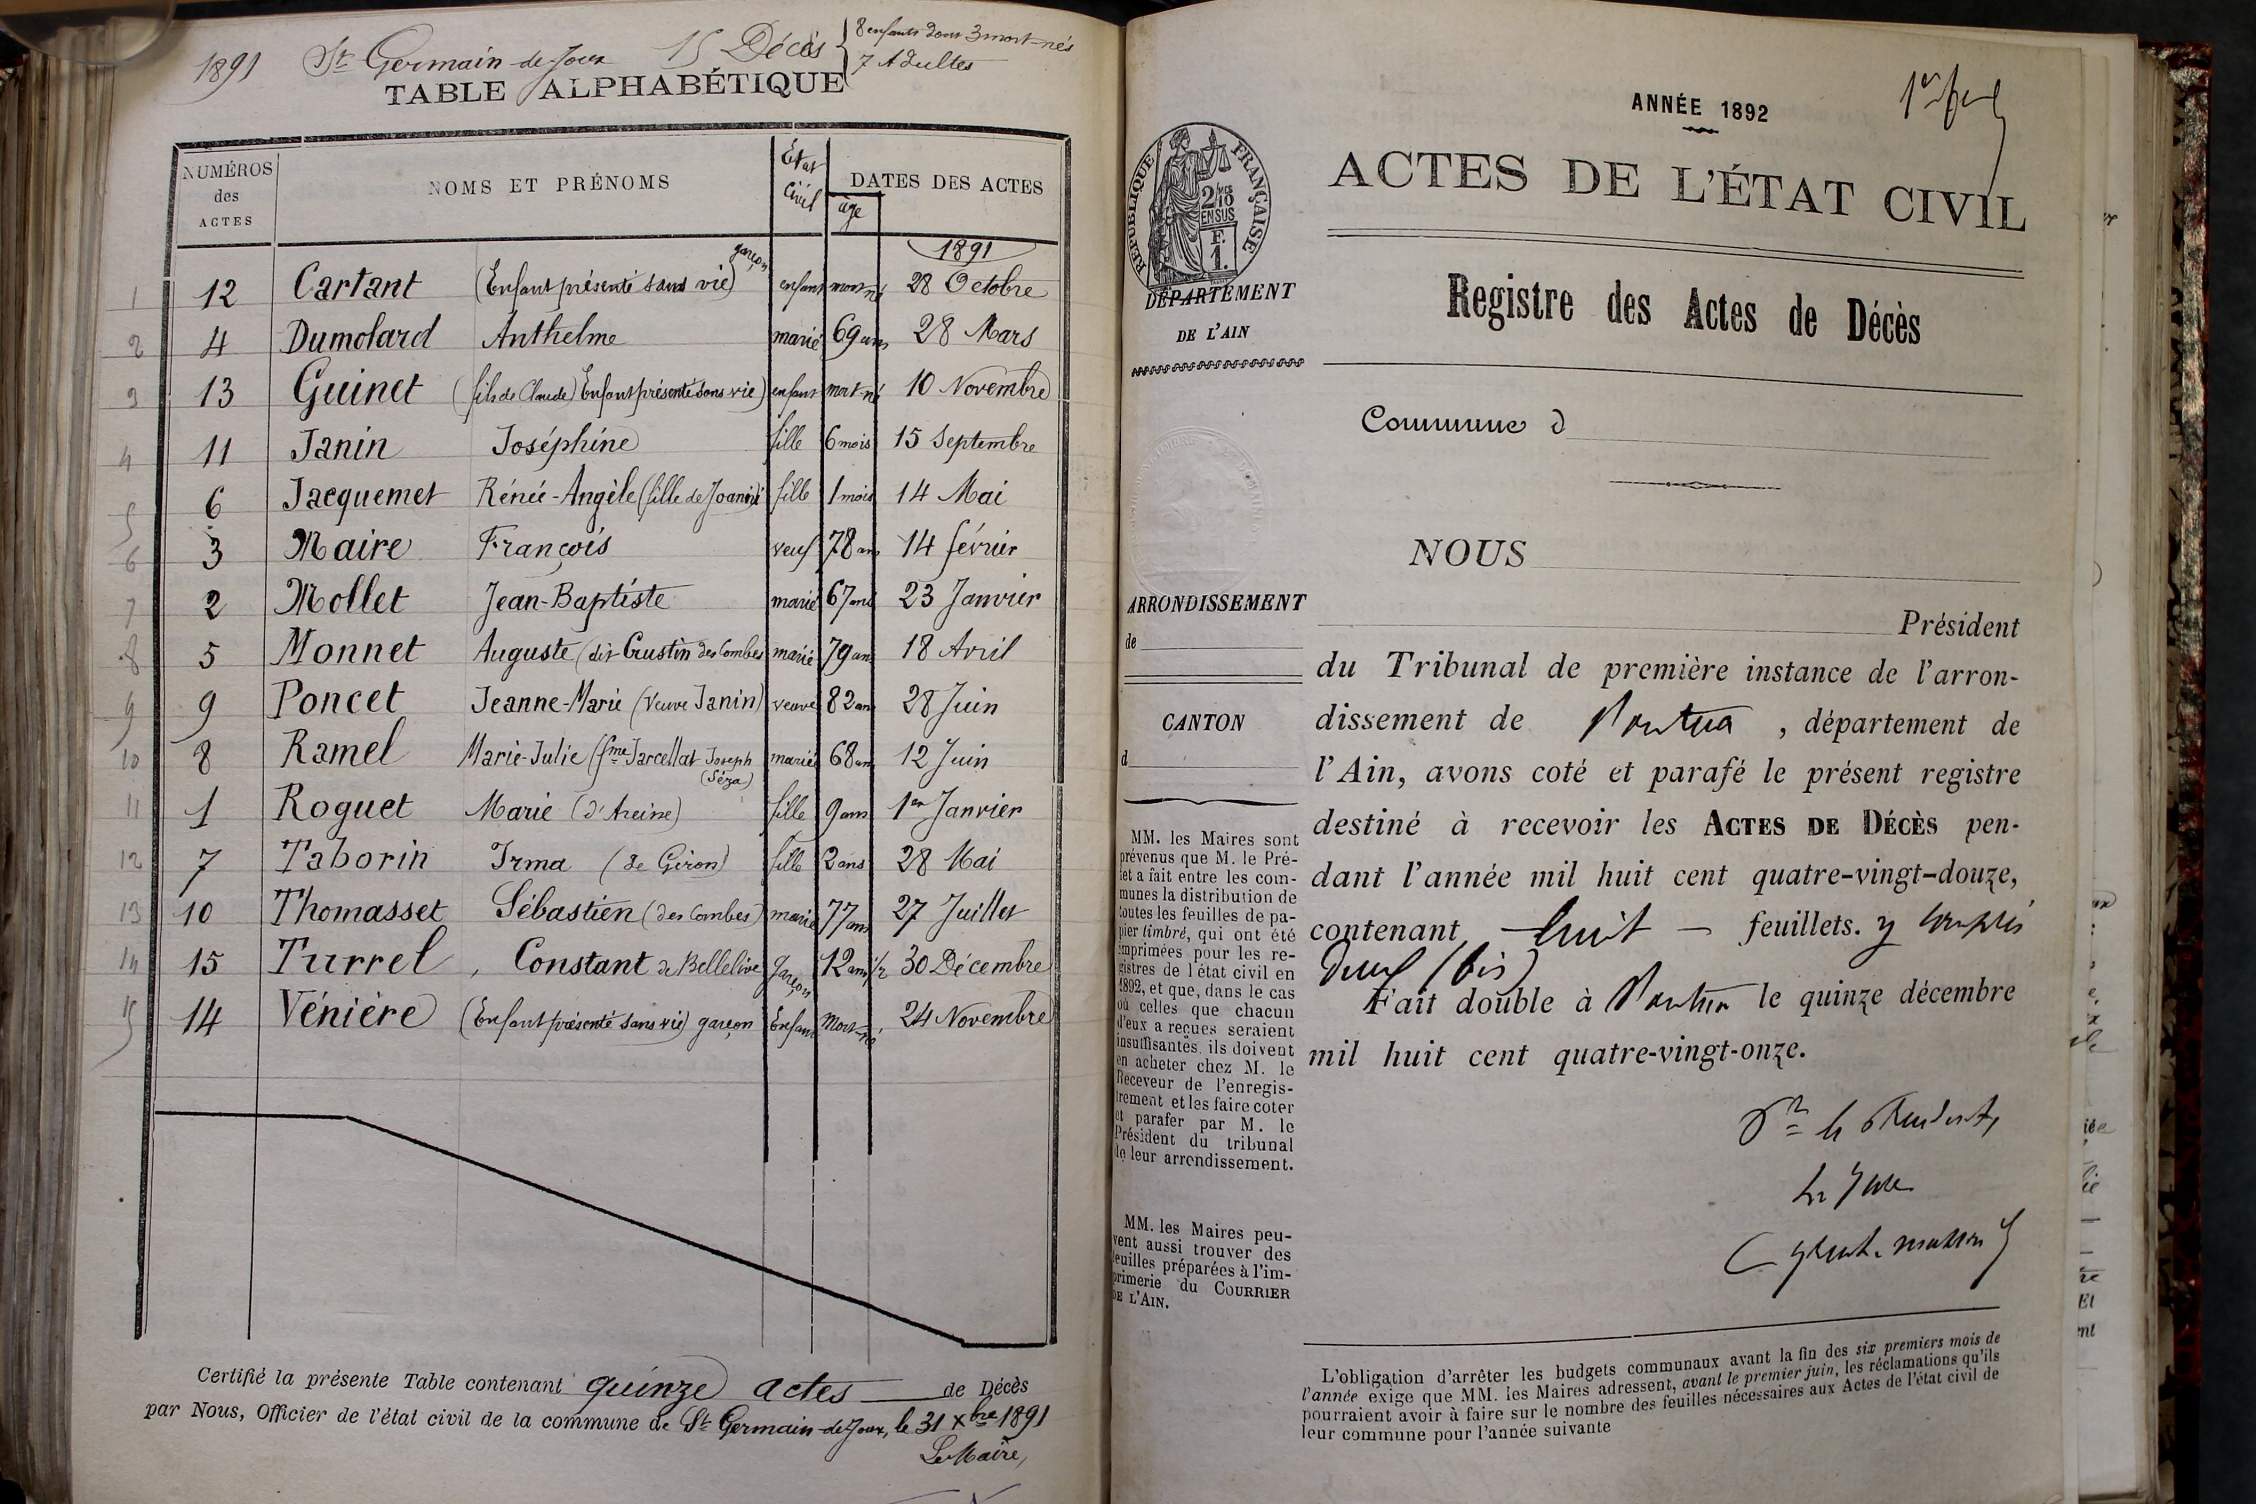 1891 St Germain-de-Joux 15 Décès { 8 enfants dont 3 mort-nés
7 Adultes
TABLE ALPHABÉTIQUE
NUMÉROS des ACTES NOMS ET PRÉNOMS État Civil âge DATES DES ACTES
1891
1 12 Cartant (Enfant présenté sans vie) garçon enfant mort-né 28 Octobre
2 4 Dumolard Anthelme marié 69 ans 28 Mars
3 13 Guinet (fils de Claude) Enfant présenté sans vie) enfant mort-né 10 Novembre
4 11 Janin Joséphine fille 6 mois 15 Septembre
5 6 Jacquemet Rénée-Angèle (fille de fille 1 mois 14 Mai
6 3 Maire François veuf 78 ans 14 février
7 2 Mollet Jean-Baptiste marié 67 ans 23 Janvier
8 5 Monnet Auguste (dit des Combes marié 79 ans 18 Avril
9 9 Poncet Jeanne-Marie (Veuve Janin) veuve 82 ans 28 Juin
10 8 Ramel Marie-Julie (fme Jarcellat Joseph marié 68 ans 12 Juin
(Séza)
11 1 Roguet Marie fille 9 ans 1er Janvier
12 7 Taborin Irma (de Giron) fille 2 ans 28 Mai
13 10 Thomasset Sébastien (des Combes) marié 77 ans 27 Juillet
14 15 Turrel, Constant de Garçon 12 ans 1/2 30 Décembre
15 14 Vénière (Enfant présenté sans vie) garçon Enfant Mort-né 24 Novembre
Certifié la présente Table contenant quinze actes de Décès
par Nous, Officier de l'état civil de la commune de St Germain-de-Joux, le 31 Xbre 1891
Le Maire,
ANNÉE 1892
ACTES DE L'ÉTAT CIVIL
RÉPUBLIQUE FRANÇAISE
2/10 EN SUS
F. 1.
DÉPARTEMENT
DE L'AIN
Registre des Actes de Décès
Commune d
NOUS
ARRONDISSEMENT
de
CANTON
d
Président
du Tribunal de première instance de l'arron-
dissement de Nantua , département de
l'Ain, avons coté et parafé le présent registre
destiné à recevoir les ACTES DE DÉCÈS pen-
dant l'année mil huit cent quatre-vingt-douze,
contenant huit feuillets. y compris
deux (bis)
Fait double à Nantua le quinze décembre
mil huit cent quatre-vingt-onze.
Pr le Président,
Le Juge
MM. les Maires sont
prévenus que M. le Pré-
fet a fait entre les com-
munes la distribution de
toutes les feuilles de pa-
pier timbré, qui ont été
imprimées pour les re-
gistres de l'état civil en
1892, et que, dans le cas
où celles que chacun
d'eux a reçues seraient
insuffisantes, ils doivent
en acheter chez M. le
Receveur de l'enregis-
trement et les faire coter
et parafer par M. le
Président du tribunal
de leur arrondissement.
MM. les Maires peu-
vent aussi trouver des
feuilles préparées à l'im-
primerie du COURRIER
DE L'AIN.
L'obligation d'arrêter les budgets communaux avant la fin des six premiers mois de
l'année exige que MM. les Maires adressent, avant le premier juin, les réclamations qu'ils
pourraient avoir à faire sur le nombre des feuilles nécessaires aux Actes de l'état civil de
leur commune pour l'année suivante